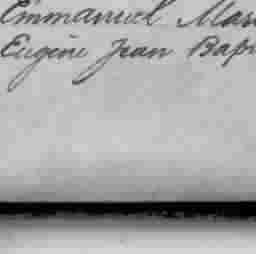 Emmanuel Mari
Eugène Jean Bap